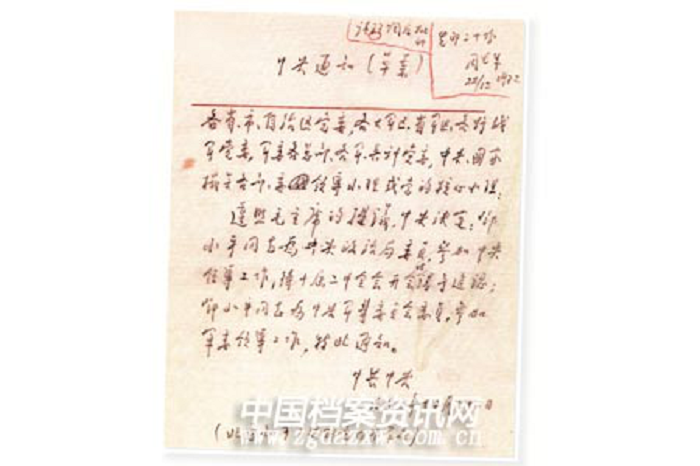 中央通知(草案)
周恩来
22/12
各省、市、自治区党委,各大军区、省军区、各野战
军党委,军委各总部、各军兵种党委,中央、国家
机关各部、委领导小组或党的核心小组:
遵照毛主席的提议,中央决定:邓
小平同志为中央政治局委员,参加中央
领导工作,待十届二中全会开会时请予追认;
邓小平同志为中央军事委员会委员,参加
军委领导工作。特此通知。
中共中央
中国档案资讯网
www.zgdazxw.com.cn